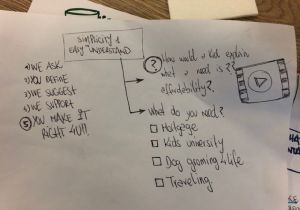 SIMPLICITY &
EASY UNDERSTAND
1) WE ASK
2) YOU DEFINE
3) WE SUGGEST
4) WE SUPPORT
5) YOU MAKE IT
RIGHT 4U!!
? How would a kid explain
what a need is??
affidebility?
What do you need?
Mortgage
Kids university
Dog groming 4 life
Traveling